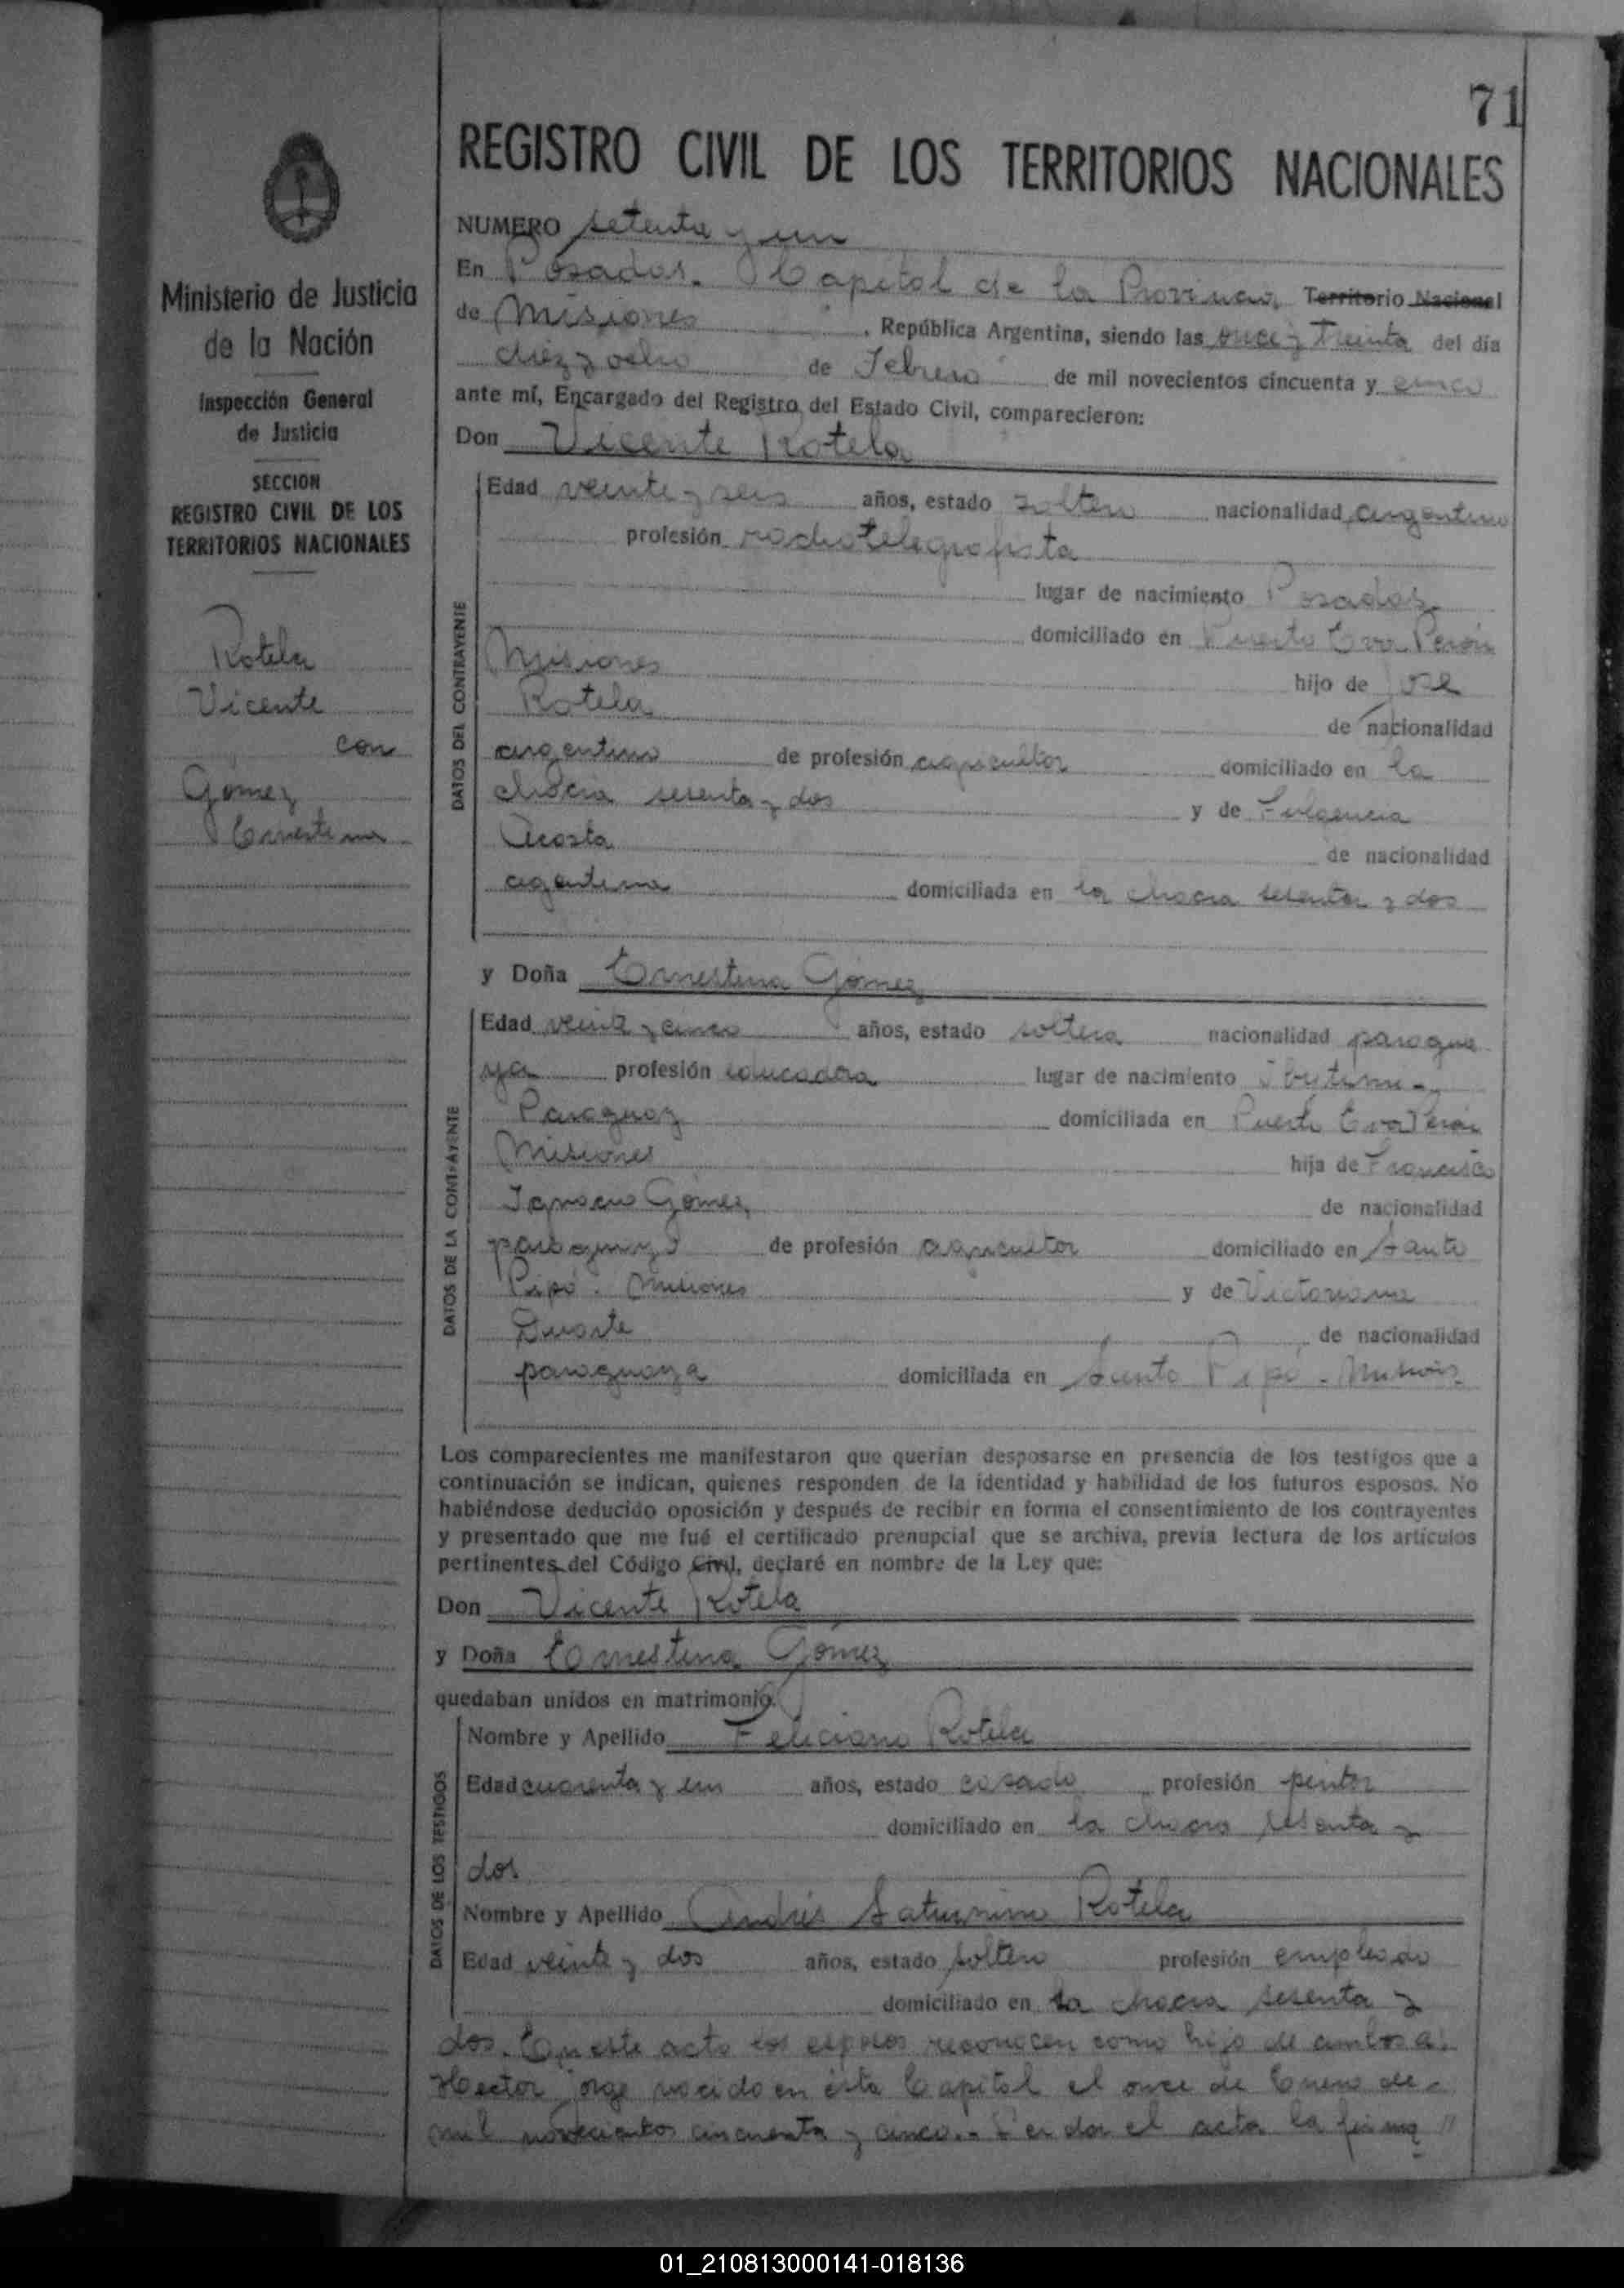 71
REGISTRO CIVIL DE LOS TERRITORIOS NACIONALES
Ministerio de Justicia
de la Nación
Inspección General
de Justicia
SECCION
REGISTRO CIVIL DE LOS
TERRITORIOS NACIONALES
Rotela
Vicente
con
Gómez
Ernestina
NUMERO setenta y un
En Posadas. Capital de la Provincia, Territorio Nacional
de Misiones , República Argentina, siendo las once y treinta del día
diez y ocho de Febrero de mil novecientos cincuenta y cinco
ante mí, Encargado del Registro del Estado Civil, comparecieron:
Don Vicente Rotela
DATOS DEL CONTRAYENTE
Edad veinte y seis años, estado soltero nacionalidad argentino
profesión radiotelegrafista
lugar de nacimiento Posadas
domiciliado en Puerto Eva Perón
Misiones hijo de José
Rotela de nacionalidad
argentino de profesión agricultor domiciliado en la
chacra sesenta y dos y de Fulgencia
Acosta de nacionalidad
agentina domiciliada en la chacra sesenta y dos
y Doña Ernestina Gómez
DATOS DE LA CONTRAYENTE
Edad veinte y cinco años, estado soltera nacionalidad paragua
ya profesión educadora lugar de nacimiento Ibytimi -
Paraguay domiciliada en Puerto Eva Perón
Misiones hija de Francisco
Ignacio Gómez, de nacionalidad
paraguayo de profesión agricultor domiciliado en Santo
Pipó. Misiones y de Victoriana
Duarte de nacionalidad
paraguaya domiciliada en Santo Pipó. Misiones
Los comparecientes me manifestaron que querían desposarse en presencia de los testigos que a
continuación se indican, quienes responden de la identidad y habilidad de los futuros esposos. No
habiéndose deducido oposición y después de recibir en forma el consentimiento de los contrayentes
y presentado que me fué el certificado prenupcial que se archiva, previa lectura de los artículos
pertinentes del Código Civil, declaré en nombre de la Ley que:
Don Vicente Rotela
y Doña Ernestina Gómez
quedaban unidos en matrimonio.
DATOS DE LOS TESTIGOS
Nombre y Apellido Feliciano Rotela
Edad cuarenta y un años, estado casado profesión pintor
domiciliado en la chacra sesenta y
dos
Nombre y Apellido Andrés Saturnino Rotela
Edad veinte y dos años, estado soltero profesión empleado
domiciliado en la chacra sesenta y
dos. En este acto los esposos reconocen como hijo de ambos a:
Hector jorge nacido en ésta Capital el once de Enero de
mil novecientos cincuenta y cinco.- el acta la firma
01_210813000141-018136